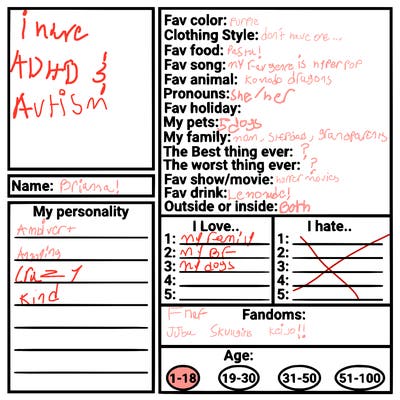 i have
ADHD &
Autism
Name: Briana!
My personality
Ambivert
Annoying
Crazy
Kind
Fav color: Purple
Clothing Style: don't have one...
Fav food: Pasta!
Fav song: my fav genre is hyperpop
Fav animal: Komodo dragons
Pronouns: she/her
Fav holiday:
My pets: 5 dogs
My family: mom, stepdad, grandparents
The Best thing ever: ?
The worst thing ever: ?
Fav show/movie: horror movies
Fav drink: Lemonade!
Outside or inside: Both
I Love..
1: my family
2: my BF
3: my dogs
4:
5:
I hate..
1:
2:
3:
4:
5:
Fandoms:
Fnaf
JJBA Kaiju!!
Age:
1-18 19-30 31-50 51-100